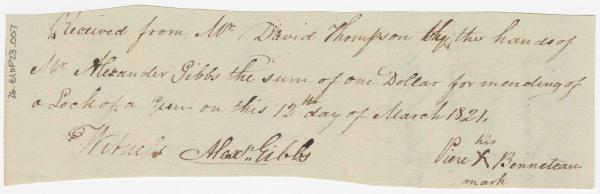 Received from Mr David Thompson by the hands of
Mr Alexander Gibbs the sum of one Dollar for mending of
a Lock of a Gun on this 12th day of March 1821.
Witness Alexr Gibbs
his
Piere X Benneteau
mark